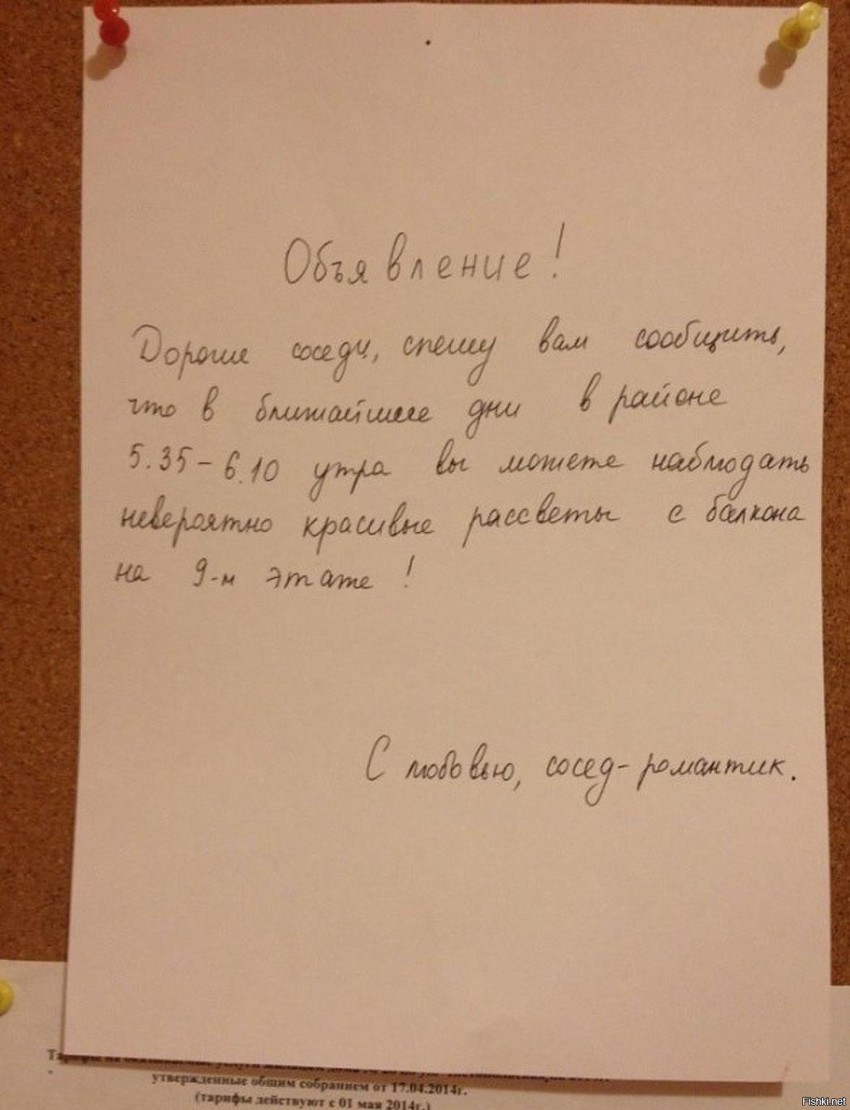 Объявление!
Дорогие соседи, спешу вам сообщить,
что в ближайшее дни в районе
5.35 – 6.10 утра вы можете наблюдать
невероятно красивые рассветы с балкона
на 9-м этаже!
С любовью, сосед-романтик.
утвержденные общим собранием от 17.04.2014г.
(тарифы действуют с 01 мая 2014г.)
Fishki.net